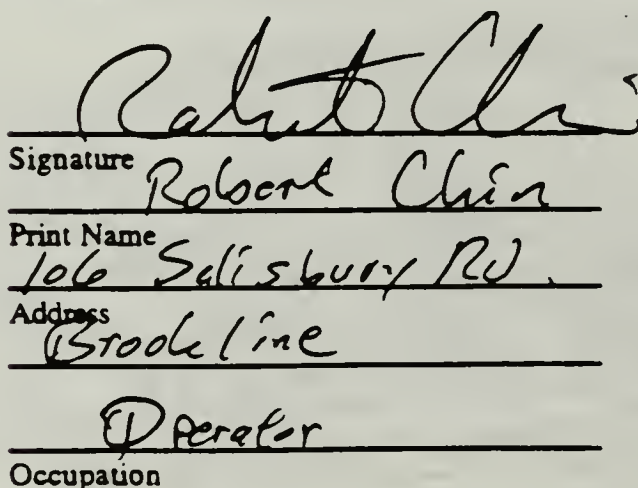 Robert Chin
Signature
Robert Chin
Print Name
106 Salisbury Rd.
Address
Brookline
Operator
Occupation